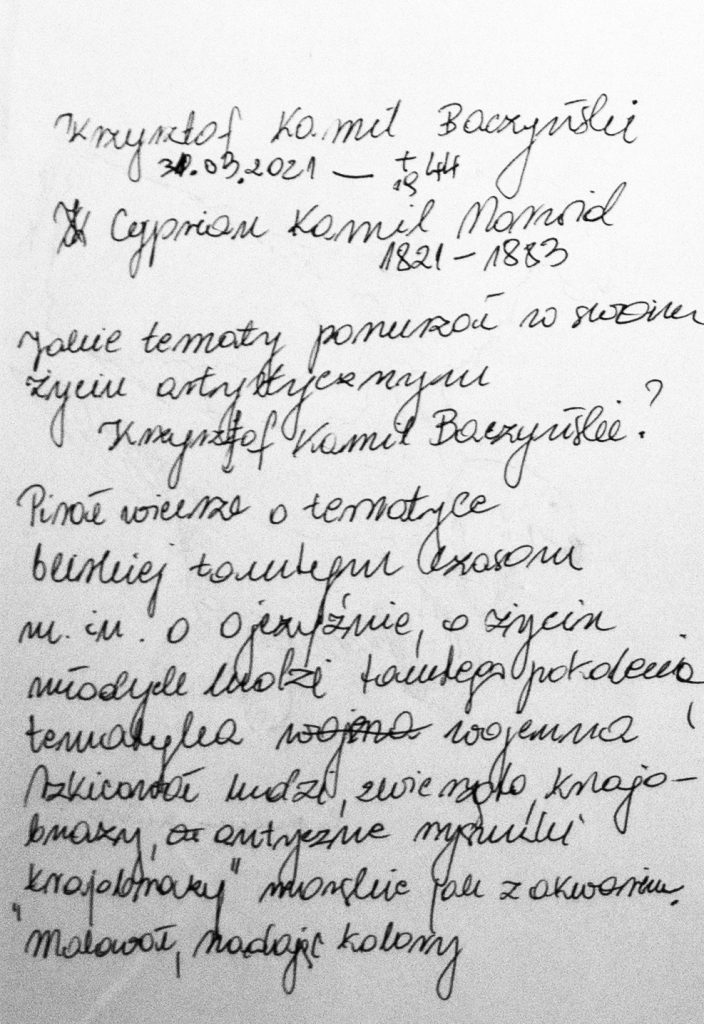 Krzysztof Kamil Baczyński
31.03.2021 — + 1944
Cyprian Kamil Norwid
1821 – 1883
Jakie tematy poruszał w swoim
życiu artystycznym
Krzysztof Kamil Baczyński?
Pisał wiersze o tematyce
bliskiej tamtym czasom
m. in. o ojczyźnie, o życiu
młodych ludzi tamtego pokolenia,
tematyka wojena wojenna
Szkicował ludzi, zwierzęta, krajo-
brazy, antyczne rysunki
krajobrazy" morskie jak z akwarium.
"Malował, nadając kolory